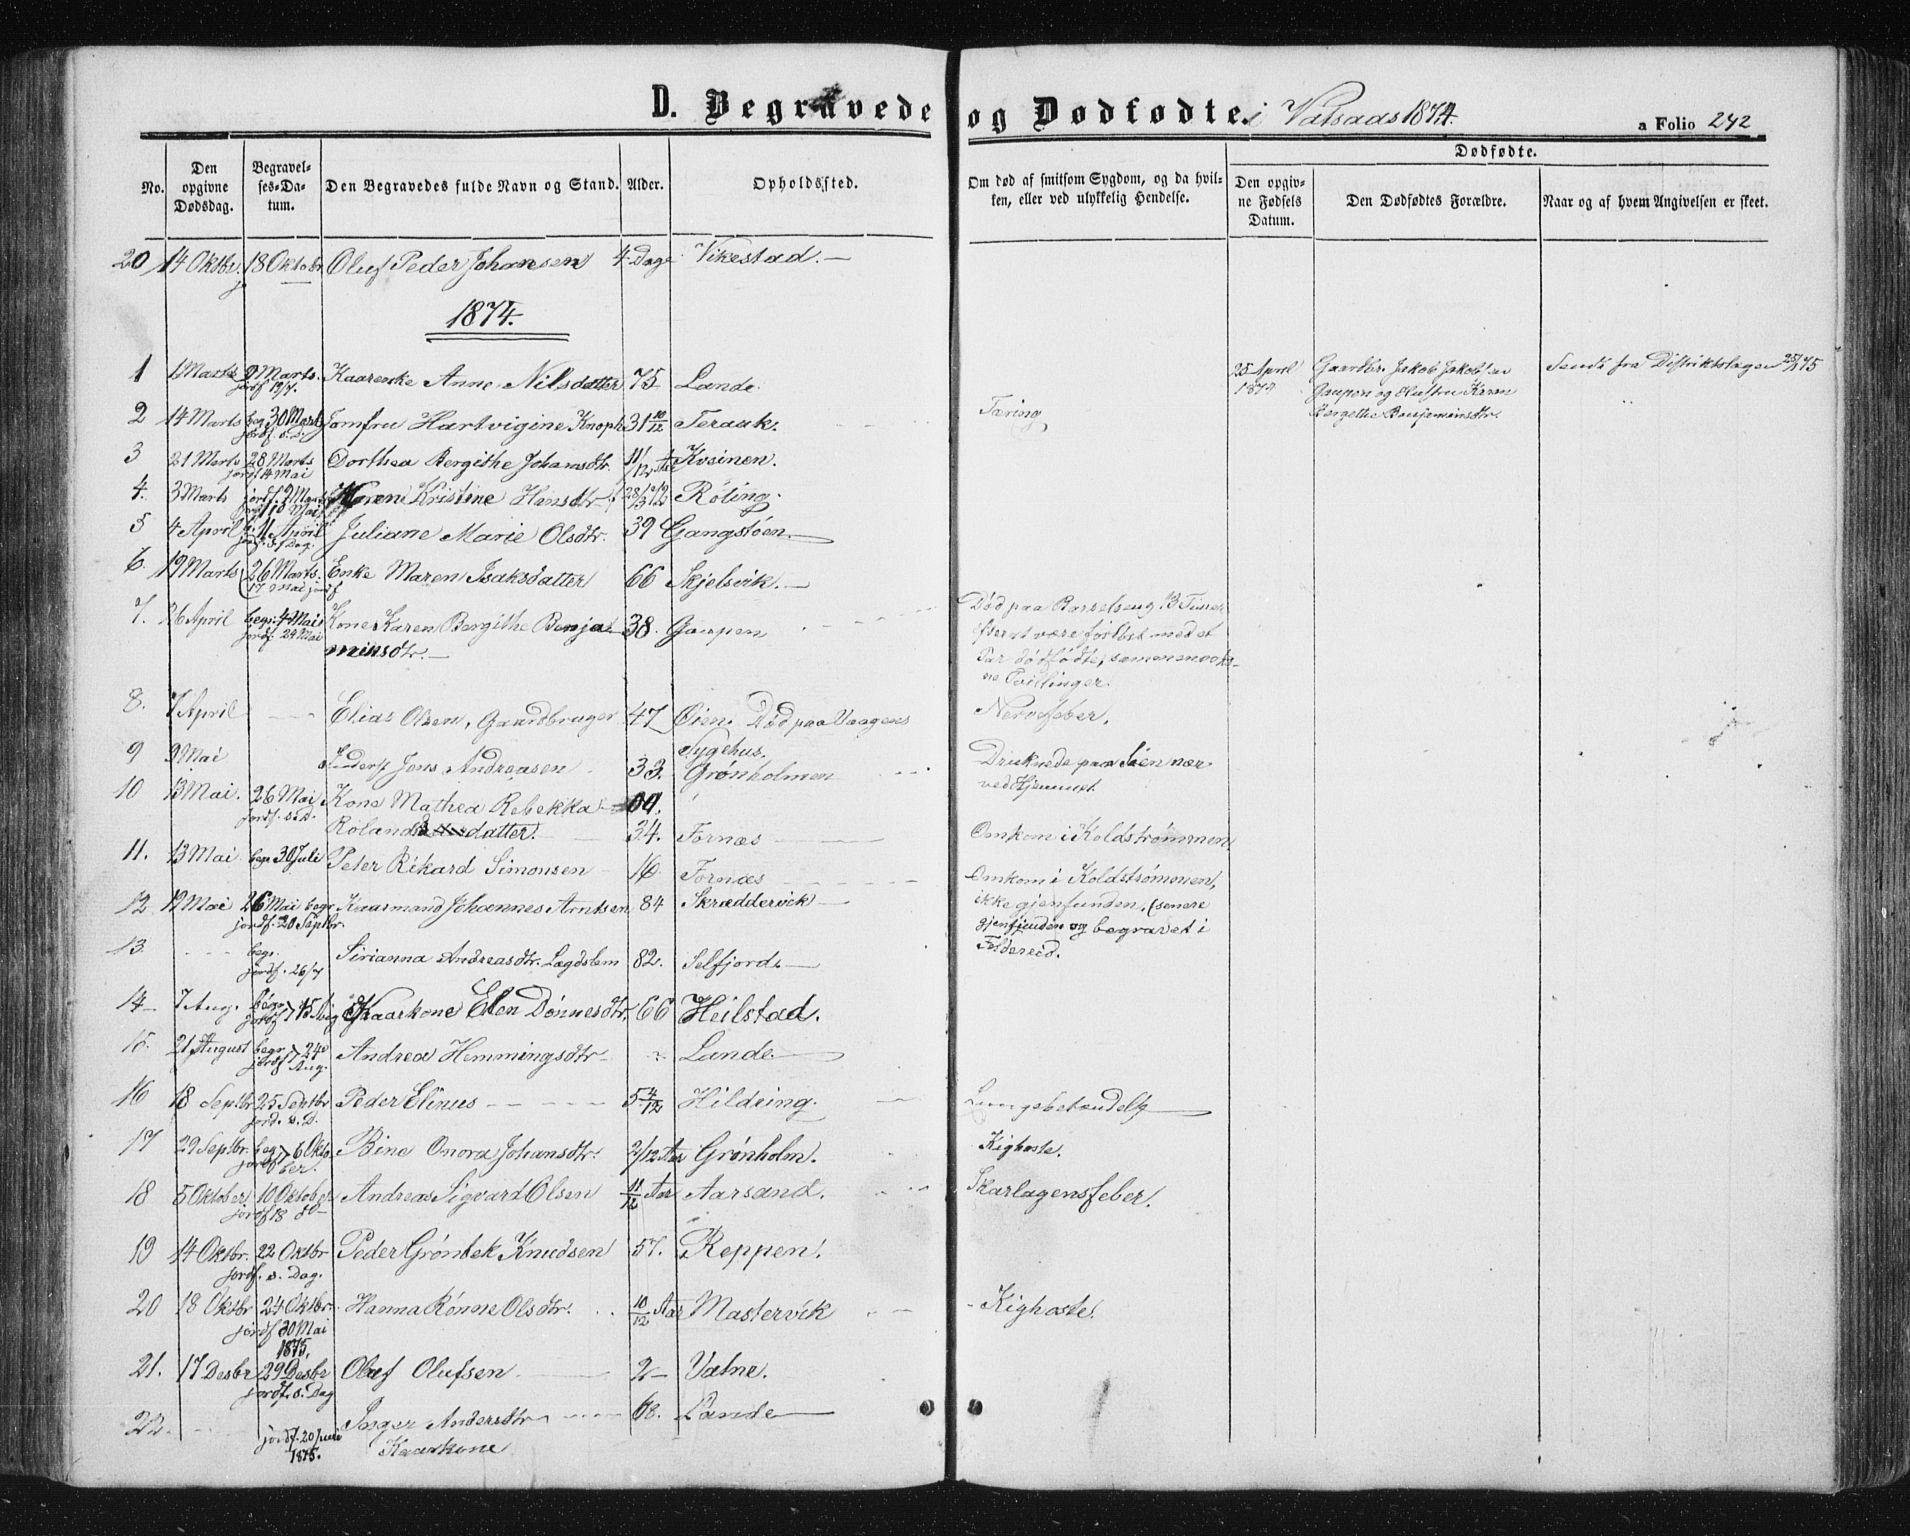 D. Begravede og Dødfødte. i Vatsaas 1874. a Folio 242
No. Den opgivne Dødsdag. Begravelses-Datum. Den Begravedes fulde Navn og Stand. Alder. Opholdssted. Om død af smitsom Sygdom, og da hvilken, eller ved ulykkelig Hendelse. Dødfødte. Den opgivne Fødsels Datum. Den Dødfødtes Forældre. Naar og af hvem Angivelsen er skeet.
20 14 Oktbr. 18 Oktobr Oluf Peder Johansen 4 Dage Vikestad.
1874.
1 1 Marts 9 Marts. jordf 19/7. Kaarenke Anne Nilsdatter 75 Lande.
25 April 1874 Gaardbr. Jakob Jakobsen Gaupen og Hustru Karen Bergethe Benjaminsdtr. Sendt fra Distriktslægen
2 14 Marts beg. 30 Marts jordf. s. D. Jomfru Hartvigine Knoph 31 10/12 Teraak. Tæring
3 21 Marts 28 Marts jordf. 4 Mai Dorthea Bergithe Johansdtr. 11/12 Aar Kveinen.
4. 3 Marts jordf. Maren Kristine Hansdtr Röting.
5 4 April b. 11 April jordf. s. Dag. Juliane Marie Olsdtr. 39 Gangstøen.
6. 19 Marts 26 Marts. 17 Mai jordf Enke Maren Isaksdatter 66 Skjelsvik.
7. 26 April begr. 4 Mai jordf. 24 Mai Kone Karen Bergithe Benjaminsdtr. 38. Gaupen Død paa Barselseng 13 Timer efter at være forløst med et Par dødfødte, sammenvoksne Tvillinger.
8. 7 April Elias Olsen, Gaardbruger 47 Øien. Død paa Vaagens Sygehus. Nervefeber.
9 9 Mai Inderst Jens Andreasen 33. Grønholmen Druknede paa Søen nær ved Hjemmet.
10 13 Mai. 26 Mai jordf. s. D. Kone Mathea Rebekka Rolandsdatter. 34. Fornæs Omkom i Koldstrømmen
11. 13 Mai begr 30 Juli Peter Rikard Simonsen 16. Fornæs Omkom i Koldstrømmen, ikke gjenfunden, (senere gjenfunden og begravet i Foldereid.
12 19 Mai 26 Mai begr jordf. 20 Septbr. Kaarmand Johannes Arntsen 84 Skræddervik
13. begr. jordf. 26/7 Sirianna Andreasdtr. Lægdslem 82. Selfjord
14 7 Aug. begr. jordf. 15 Aug Kaarkone Elen Dønnesdtr. 66 Heilstad.
15. 21 August begr jordf 24de Aug. Andrea Hemmingsdtr Lande
16 18 Septbr 25 Septbr jord. s. D. Peder Elinus 5 4/12 Hildring. Lungebetændelse
17 29 Septbr. begr jordf 6 Oktober. Bine Onora Johansdtr. 2/12 Aar Grønholm. Kighoste.
18 5 Oktober 10 Oktober jordf 18 do Andreas Sigvard Olsen 11/12 Aar Aarsand. Skarlagensfeber.
19 14 Oktbr. 22 Oktbr jordf. s. Dag. Peder Grønbek Knudsen 57. Reppen.
20 18 Oktbr 24 Oktbr. jordf 30 Mai 1875. Hanna Rønne Olsdtr. 10/12 Aar Mastervik Kighoste.
21. 17 Desbr 29 Desbr jordf. s. Dag Oluf Olufsen 2 Vatne.
22. jordf. 20 Juni 1875. Inger Andersdtr Kaarkone 68. Lande